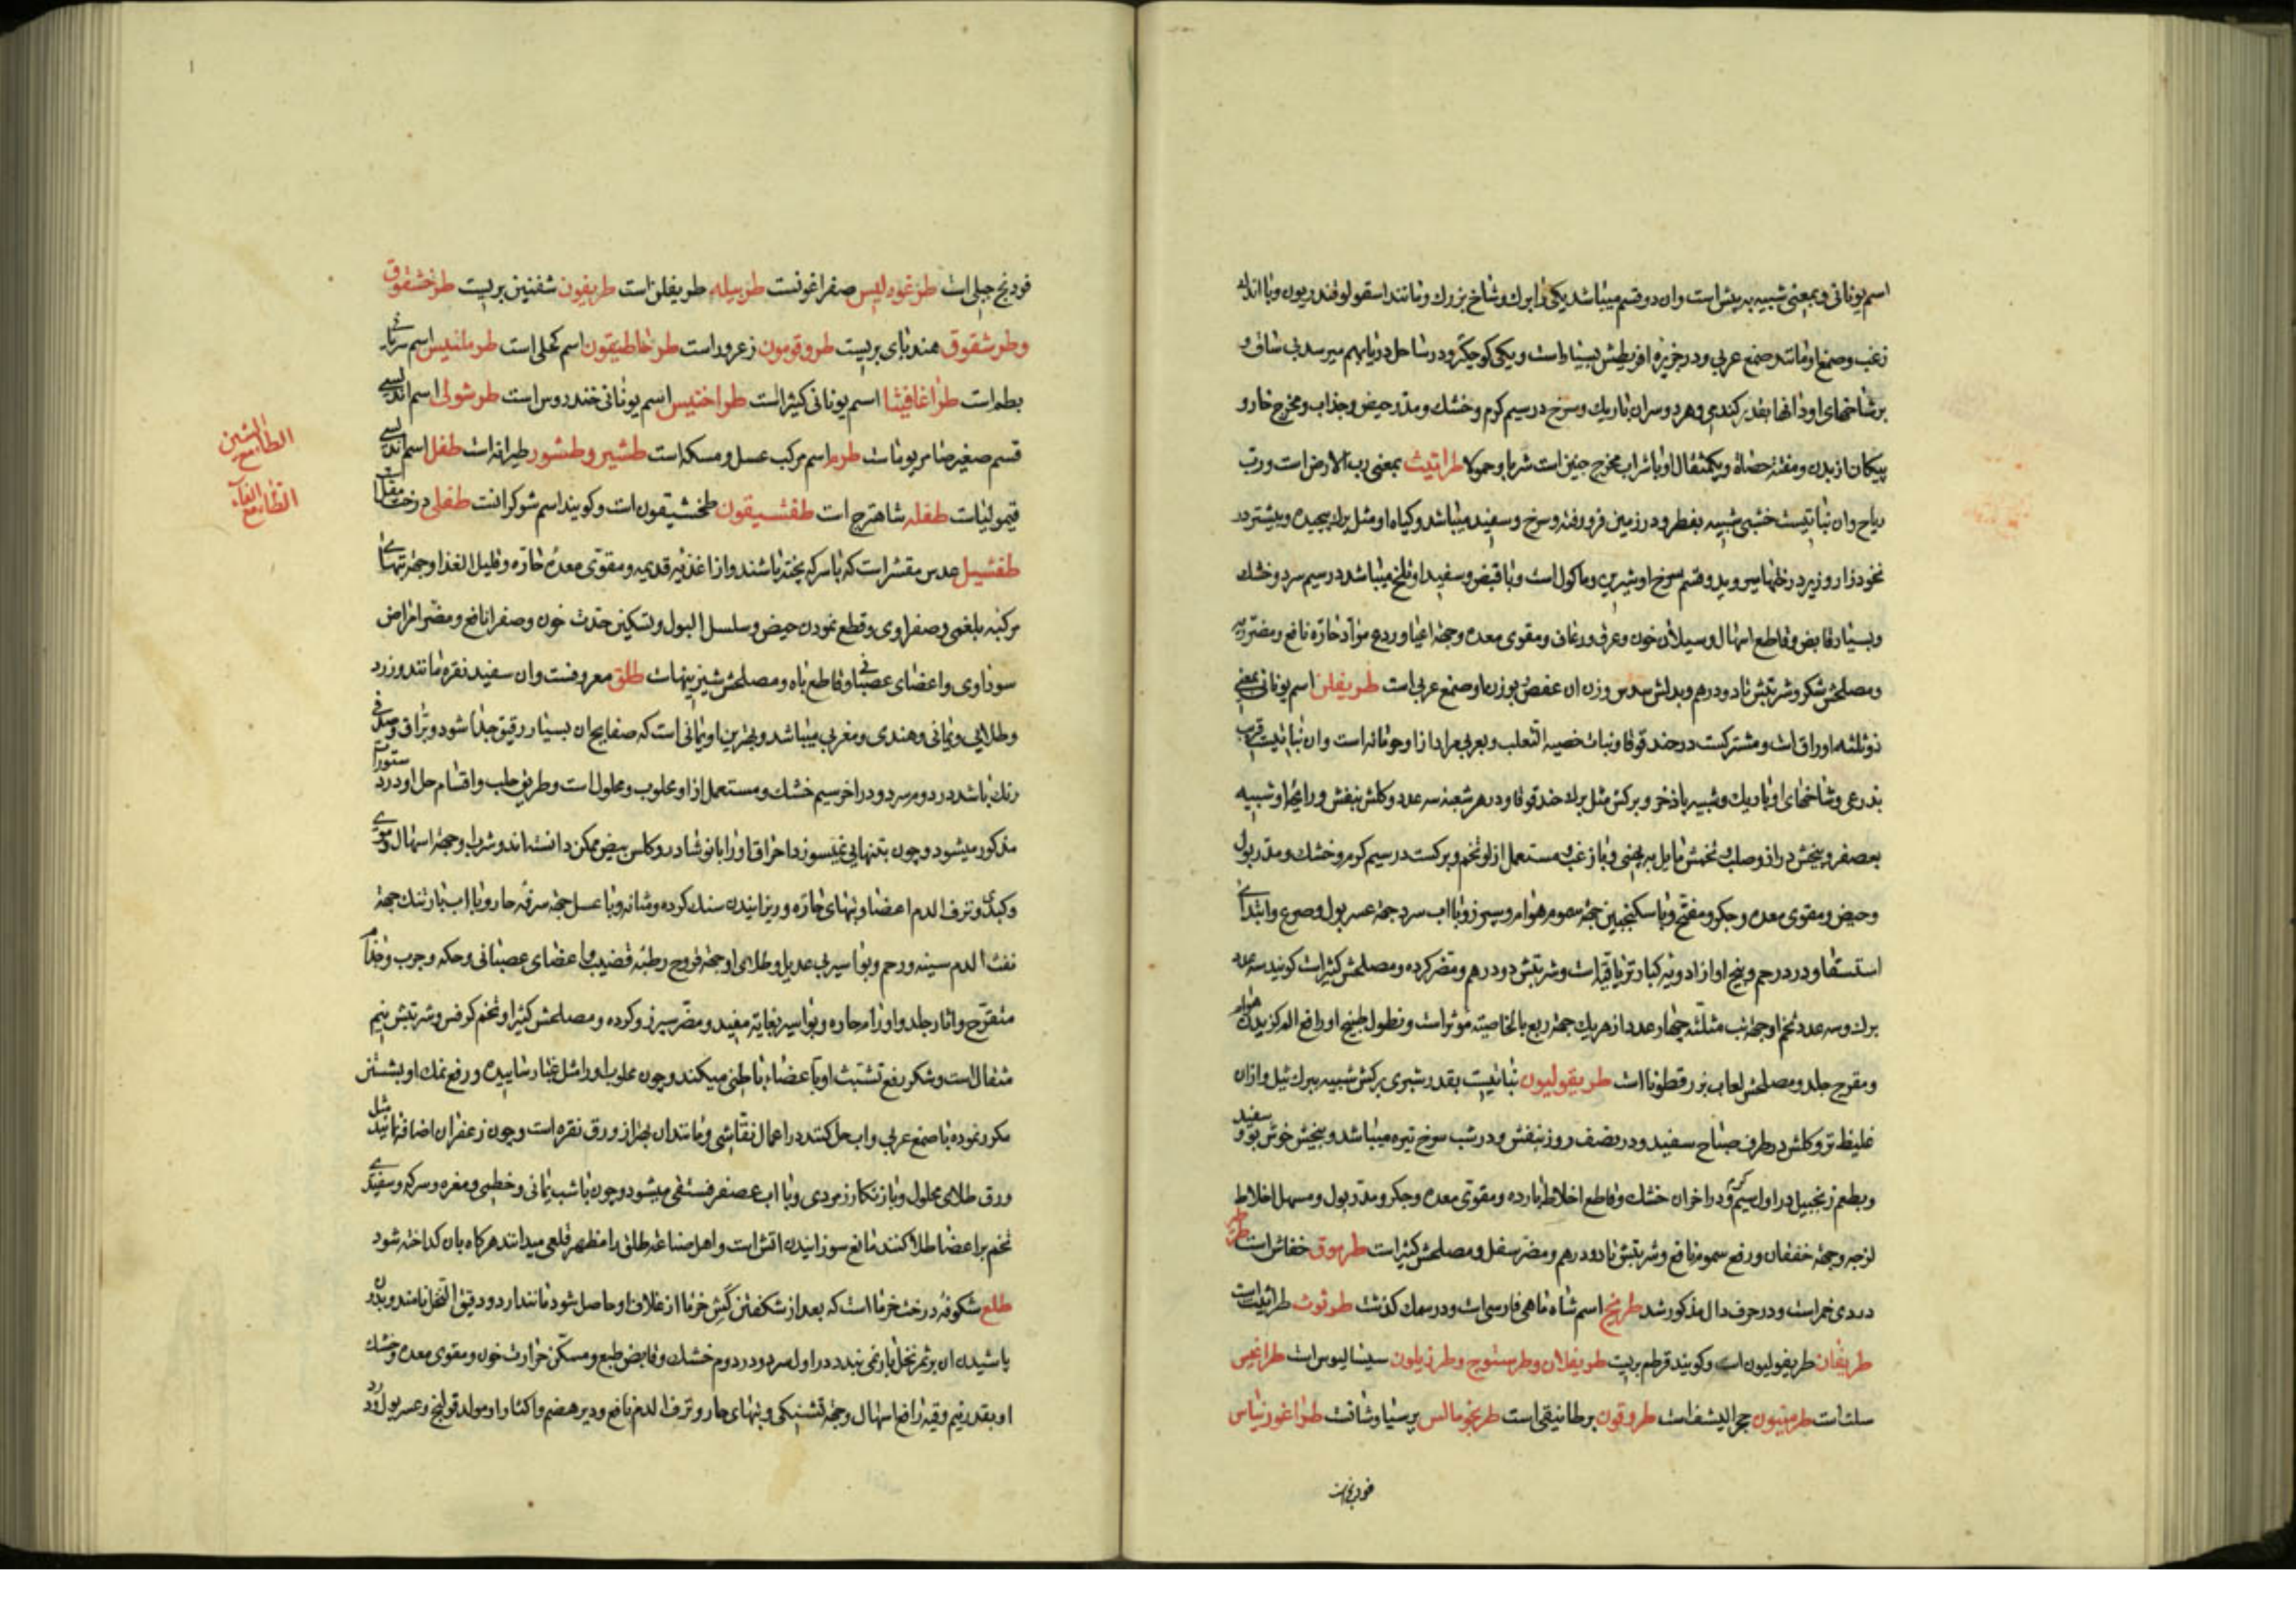 اسم یونانی و بمعنی شبیه به بیش است وان دو قسم میباشد یکی را برك و شاخ بزرك و مانند اسقولوفندریون و با اندك
زغب و صمغ او مانند صمغ عربی و در جزیره اقریطش بسیار است و یکی کوچکتر و در ساحل دریا بهم میرسد بی ساق و
بر شاخهای او دانها بقدر کندمی و هر دو سران باریك و سرخ در سیم کرم و خشك و مدر حیض و جذاب و مخرج خار و
پیکان از بدن و مفتت حصاة و یکمثقال او با شراب مخرج جنین است شربا و حمولا طراثیث بمعنی رب الارض است و رب
ریاح وان نباتیست خشبی شبیه بفطر و در زمین فرو رفته و سرخ و سفید میباشد و کیاه او مثل برك پیچیده و بیشتر در
نخودزار و زیر درختها میروید و قسم سرخ او شیرین و ماکول است و با قبض و سفید او تلخ میباشد در سیم سرد و خشك
و بسیار قابض و قاطع اسهال و سیلان خون و عرق و رعاف و مقوی معده و جهة اعیا و ردع مواد حاره نافع و مضر ریه
و مصلحش شکر و شربتش تا دو درهم و بدلش سدس وزن ان عفص بوزن او صمغ عربی است طریفلن اسم یونانی بمعنی
ذو ثلثه اوراق است و مشترکست در حندقوقا و نبات خصیه الثعلب و بعربی مراد از او حومانه است وان نباتیست قریب
بذرعی و شاخهای او باریك و شبیه باذخر و برکش مثل برك حندقوقا و در هر شعبه سه عدد و کلش بنفش و رایحه او شبیه
بعصفر و بیخش دراز و صلب و تخمش مایل به پهنی و با زغب و مستعمل از او تخم و برکست در سیم کرم و خشك و مدر بول
و حیض و مقوی معده و جکر و مفتح و با سکنجبین جهة سموم هوام و سپرز و با اب سرد جهة عسر بول و صرع و ابتدای
استسقا و درد رحم و بیخ او از ادویه کبار تریاقیه است و شربتش دو درهم و مضر کرده و مصلحش کثیرا است کویند سه عدد
برك و سه عدد تخم او جهة تب مثلثه و چهار عدد از هر یك جهة ربع بالخاصیته موثر است و نطول طبیخ او رافع الم کزیدن هوام
و مقرح جلد و مصلحش لعاب بزرقطونا است طریقولیون نباتیست بقدر شبری برکش شبیه ببرك نیل و ازان
غلیظ تر و کلش در طرف صباح سفید و در نصف روز بنفش و در شب سرخ تیره میباشد و بیخش خوش بو و سفید
و بطعم زنجبیل در اول سیم کرم و در اخر ان خشك و قاطع اخلاط بارده و مقوی معده و جکر و مدر بول و مسهل اخلاط
لزجه و جهة خفقان و رفع سموم نافع و شربتش تا دو درهم و مضر سفل و مصلحش کثیرا است طرموق خفاش است
دردی خمر است و در حرف دال مذکور شد طریخ اسم شاه ماهی فارسی است و در سمك کذشت طرثوث طراثیث است
طریفان طریفولیون است و کویند قرطم بریست طریفلان و طرستوج و طرزیلون سیسالیوس است
سلت است طرمنیون حجر الیشف است طروقون برطانیقی است طریخومالس پرسیاوشانست طراغوریناس
فودنج است
فودنج جبلی است طرغودلیس صفراغونست طربیله طریفلن است طریفون شفنین بریست طرخشقوق
و طرشقوق هندبای بریست طروقومون زعرور است طرخاطیقون اسم کحلی است طرملنیس اسم سریانی
بطم است طراغاقیثا اسم یونانی کثیرا است طراخنیس اسم یونانی خندروس است طرشولی اسم اندلسی
قسم صغیر ضامریوما است طرم اسم مرکب عسل و مسکه است طشیر و طشور طیرانه است طفل اسم اندلسی
قیمولیا است طفله شاهترج است طقشیقون طخشیقون است و کویند اسم شوکرانست طفلی درخت مقل
طفشیل عدس مقشر است که با سرکه پخته باشند و از اغذیه قدیمه و مقوی معده حاره و قلیل الغذا و جهة تبهای
مرکبه بلغمی و صفراوی و قطع نمودن حیض و سلسل البول و تسکین حدت خون و صفرا نافع و مضر امراض
سوداوی و اعضای عصبانی و قاطع باه و مصلحش شیرینیهاست طلق معروفست وان سفید نقره مانند و زرد
و طلایی و یمانی و هندی و مغربی میباشد و بهترین او یمانی است که صفایح ان بسیار رقیق جدا شود و براق و صدفی
رنك باشد در دوم سرد و در اخر سیم خشك و مستعمل از او محلوب و محلول است و طریق حلب و اقسام حل او در دستورات
مذکور میشود و چون بتنهایی نمیسوزد احراق او را با نوشادر و کلس بیض ممکن دانسته اند و شرب او جهة اسهال دموی
و کبدی و نزف الدم اعضا و تبهای حاره و ریزانیدن سنك کرده و مثانه و با عسل جهة سرفه حار و با اب بارتنك جهة
نفث الدم سینه و رحم و بواسیر بی عدیل و طلای او جهة قروح رطبه قضیب و اعضای عصبانی و حکه و جرب و جذام
متقرح و اثار جلد و اورام حاره و بواسیر بغایة مفید و مضر سپرز و کرده و مصلحش کثیرا و تخم کرفس و شربتش نیم
مثقال است و شکر رفع تشبث او باعضاء باطنی میکند و چون محلوب او را مثل غبار سائیده و رفع نمك او بشستن
مکرر نموده با صمغ عربی و اب حل کنند در اعمال نقاشی و مانند ان بهتر از ورق نقره است و چون زعفران اضافه نمایند مثل
ورق طلای محلول و با زنکار زمردی و با اب عصفر فستقی میشود و چون با شب یمانی و خطمی و مغره و سرکه و سفیدی
تخم بر اعضا طلا کنند مانع سوزانیدن اتش است و اهل صناعة طلق را مطهر قلعی میدانند هرکاه بان کداخته شود
طلع شکوفه درخت خرما است که بعد از شکفتن کش خرما از غلاف او حاصل شود مانند ارد و دقیق النخل نامند و بدون
پاشیدن ان بر ثمر نخل بار نمی بندد در اول سرد و در دوم خشك و قابض طبع و مسکن حرارت خون و مقوی معده و خشك
او بقدر نیم وقیه رافع اسهال و جهة تشنکی و تبهای حار و نزف الدم نافع و دیر هضم و اکثار او مولد قولنج و عسر بول و درد
الطا مع الشین
الطا مع الفاء